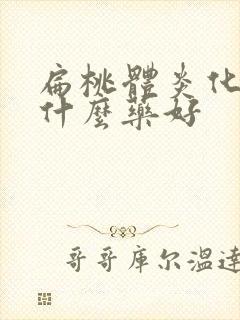 扁桃體炎化
什麼藥好
哥哥庫尔温達